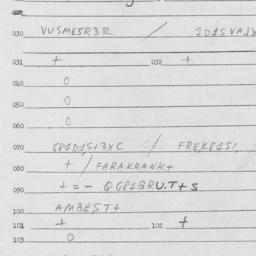 020
030 VUSME5R3R / JD15VAJX
031 + 032 +
040 0
050 0
060 0
070 G81D1S+3XC FREK81S1,
080 + / FARAKRANK+
090 + = - QG81BRU.T+S
100 AMBEST+
101 + 102 +
103 0